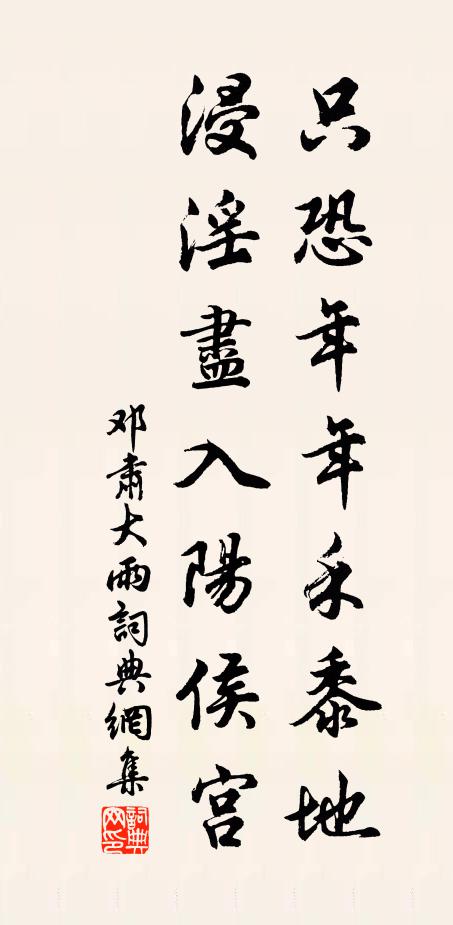 只恐年年禾黍地
浸淫盡入陽侯宫
邓肅大雨詞典網集
詞典网印